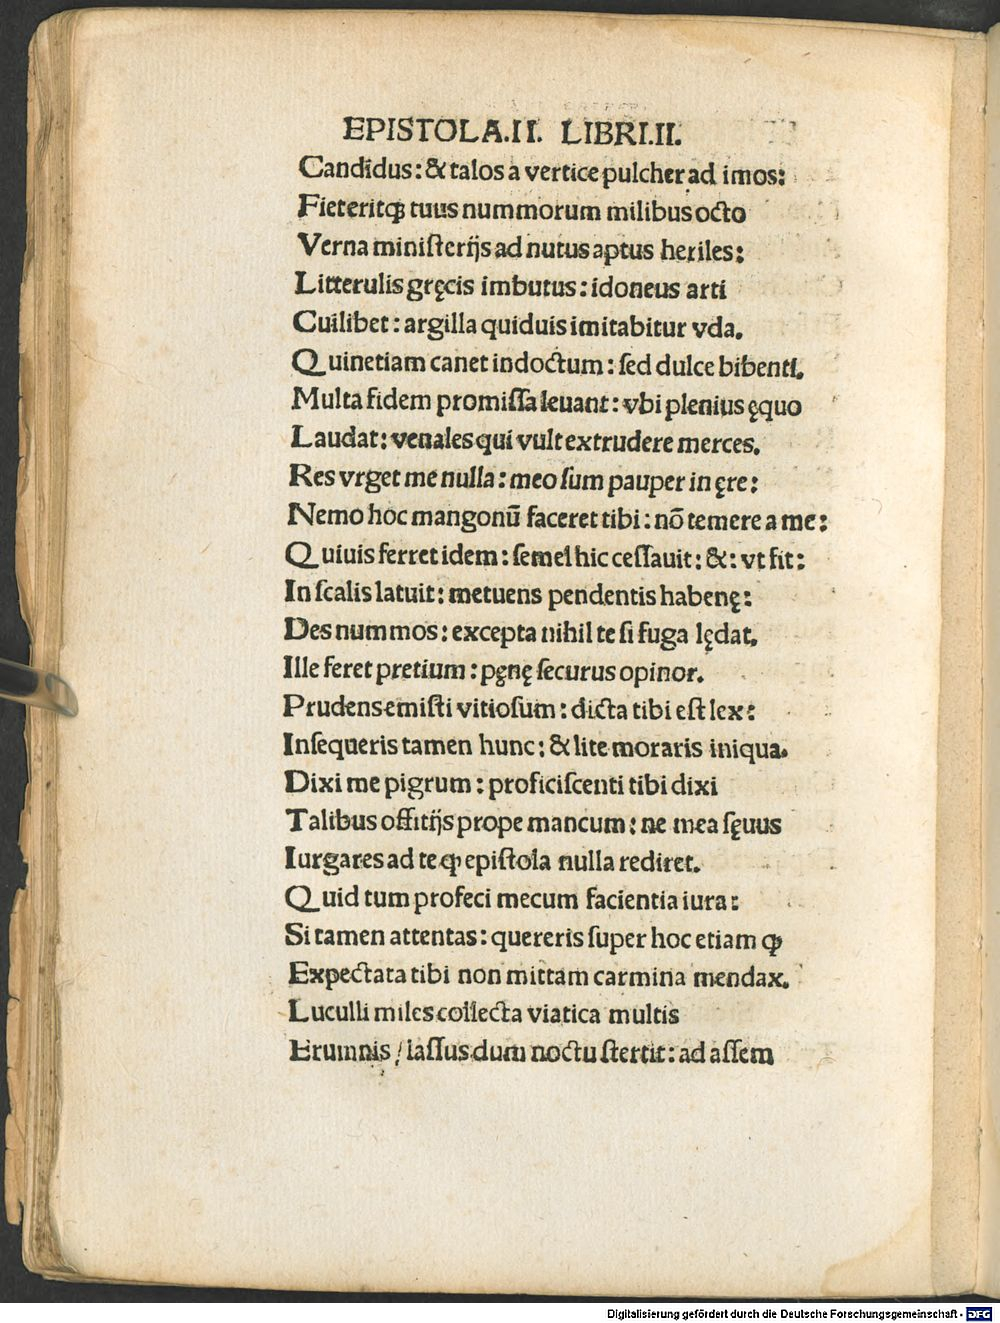 EPISTOLA.II. LIBRI.II.
Candidus: & talos a vertice pulcher ad imos:
Fieteritqꝫ tuus nummorum milibus octo
Verna miniſterijs ad nutus aptus heriles:
Litterulis gręcis imbutus: idoneus arti
Cuilibet: argilla quiduis imitabitur vda.
Quinetiam canet indoctum: ſed dulce bibenti.
Multa fidem promiſſa leuant: vbi plenius ęquo
Laudat: venales qui vult extrudere merces.
Res vrget me nulla: meo ſum pauper in ęre:
Nemo hoc mangonū faceret tibi: nō temere a me:
Quiuis ferret idem: ſemel hic ceſſauit: &: vt fit:
In ſcalis latuit: metuens pendentis habenę:
Des nummos: excepta nihil te ſi fuga lędat.
Ille feret pretium: pęnę ſecurus opinor.
Prudens emiſti vitioſum: dicta tibi eſt lex:
Inſequeris tamen hunc: & lite moraris iniqua.
Dixi me pigrum: proficiſcenti tibi dixi
Talibus offitijs prope mancum: ne mea ſęuus
Iurgares ad te ꝙ epiſtola nulla rediret.
Quid tum profeci mecum facientia iura:
Si tamen attentas: quereris ſuper hoc etiam ꝙ
Expectata tibi non mittam carmina mendax.
Luculli miles collecta viatica multis
Erumnis / laſſus dum noctu ſtertit: ad aſſem
Digitalisierung gefördert durch die Deutsche Forschungsgemeinschaft - DFG